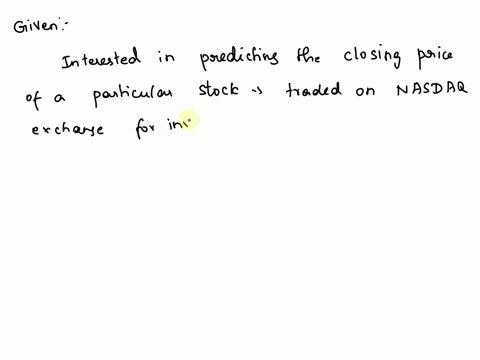 Given:-
Interested in predicting the closing price
of a particular stock is traded on NASDAQ
exchange for inv